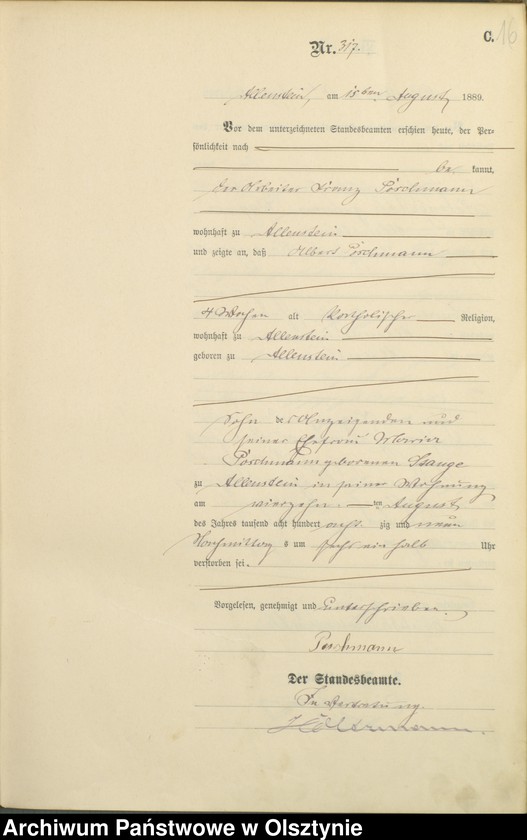 C. 16
Nr. 317.
Allenstein, am 15ten August 1889.
Vor dem unterzeichneten Standesbeamten erschien heute, der Per-
sönlichkeit nach
be kannt,
der Arbeiter Franz Porschmann
wohnhaft zu Allenstein
und zeigte an, daß Albert Porschmann
4 Wochen alt katholischer Religion,
wohnhaft zu Allenstein
geboren zu Allenstein
Sohn des Anzeigenden und
seiner Ehefrau Maria
Porschmann geborenen
zu Allenstein in seiner Wohnung
am vierzehnten August
des Jahres tausend acht hundert acht zig und neun
Nachmittags um sechs ein halb Uhr
verstorben sei.
Vorgelesen, genehmigt und unterschrieben.
Porschmann
Der Standesbeamte.
In Vertretung.
Archiwum Państwowe w Olsztynie